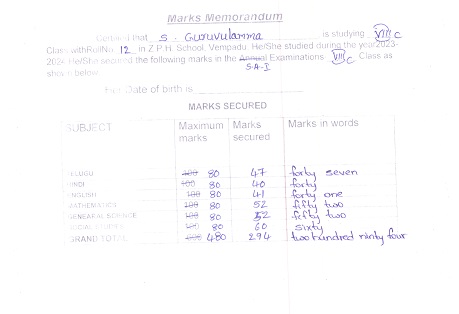 Marks Memorandum
Certified that S. Guruvulamma is studying VIII C
Class with Roll No 12 in Z P.H. School, Vempadu. He/She studied during the year 2023-
2024 He/She secured the following marks in the Annual Examinations VIII C Class as
S.A-I
shown below.
Date of birth is
MARKS SECURED
SUBJECT Maximum marks Marks secured Marks in words
TELUGU 100 80 47 forty seven
HINDI 100 80 40 forty
ENGLISH 100 80 41 forty one
MATHEMATICS 100 80 52 fifty two
GENEARAL SCIENCE 100 80 52 fefty two
SOCIAL STUDIES 100 80 60 sixty
GRAND TOTAL 480 294 two hundred ninty four